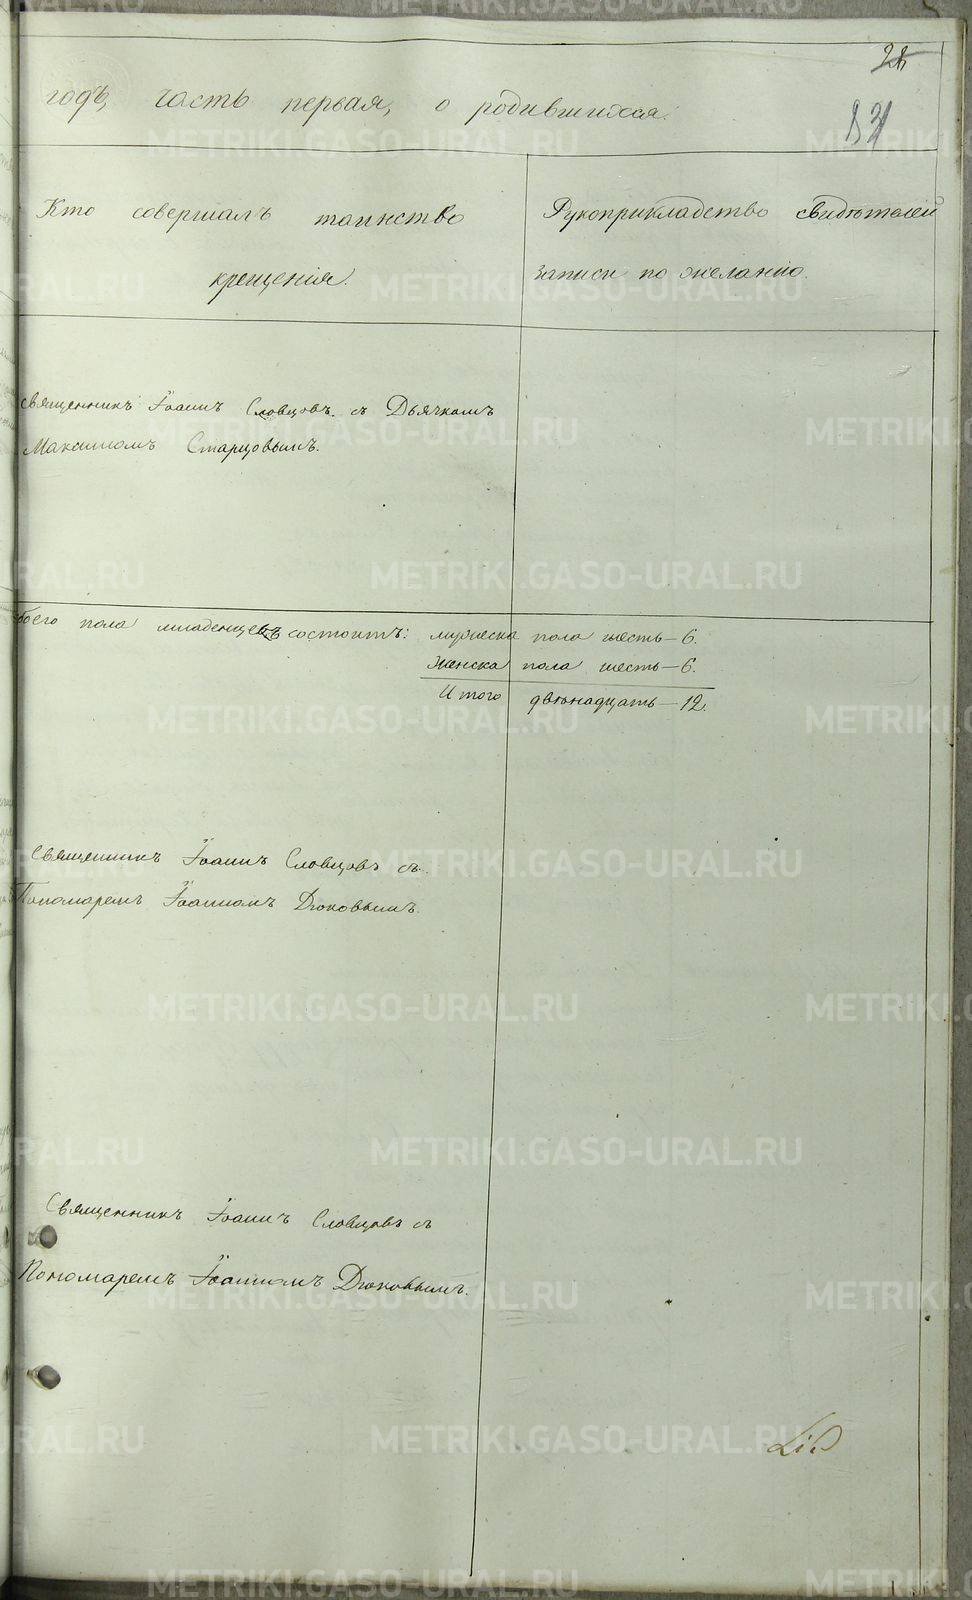 годъ, часть первая, о родившихся.
Кто совершалъ таинство
крещенія.
Рукоприкладство свидѣтелей
записи по желанію.
священникъ Іоаннъ Словцовъ съ Дьячкомъ
Максимомъ Старцовымъ.
боего пола младенцевъ состоитъ: мужеска пола шесть — 6.
женска пола шесть — 6.
Итого двенадцать — 12.
Священникъ Іоаннъ Словцовъ съ
Пономаремъ Іоанномъ Дюковымъ.
Священникъ Іоаннъ Словцовъ съ
Пономаремъ Іоанномъ Дюковымъ.
METRIKI.GASO-URAL.RU